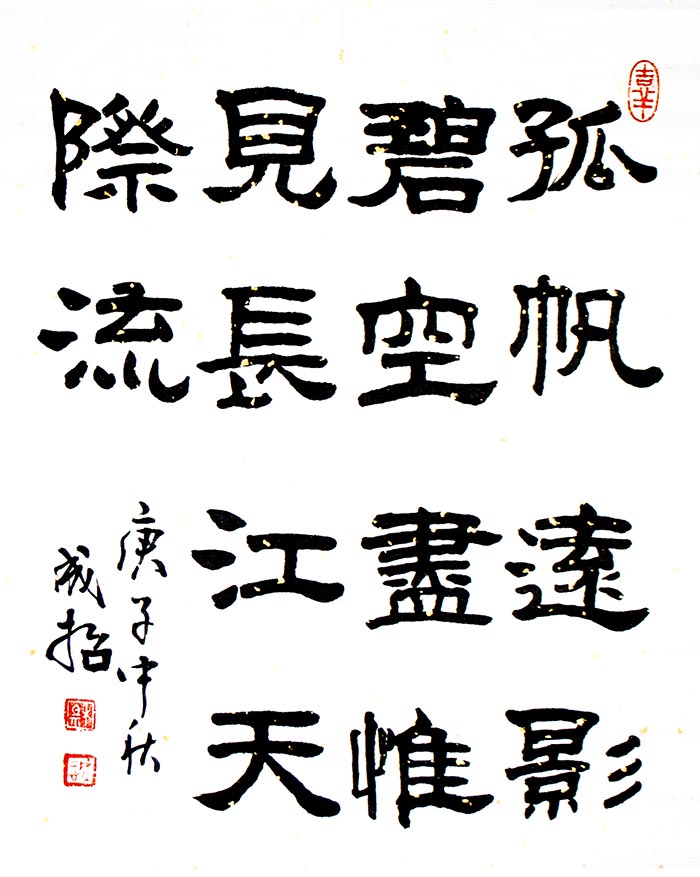 吉羊
孤帆遠影
碧空盡惟
見長江天
際流
庚子中秋
成